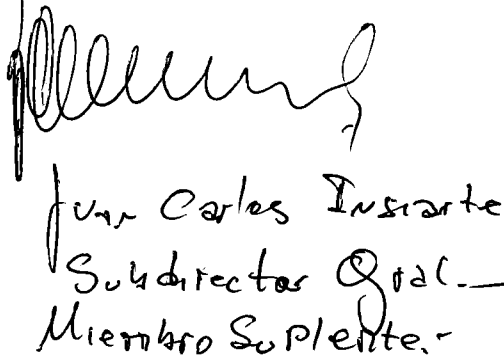 Juan Carlos Insiarte
Subdirector Gral.-
Miembro Suplente.-